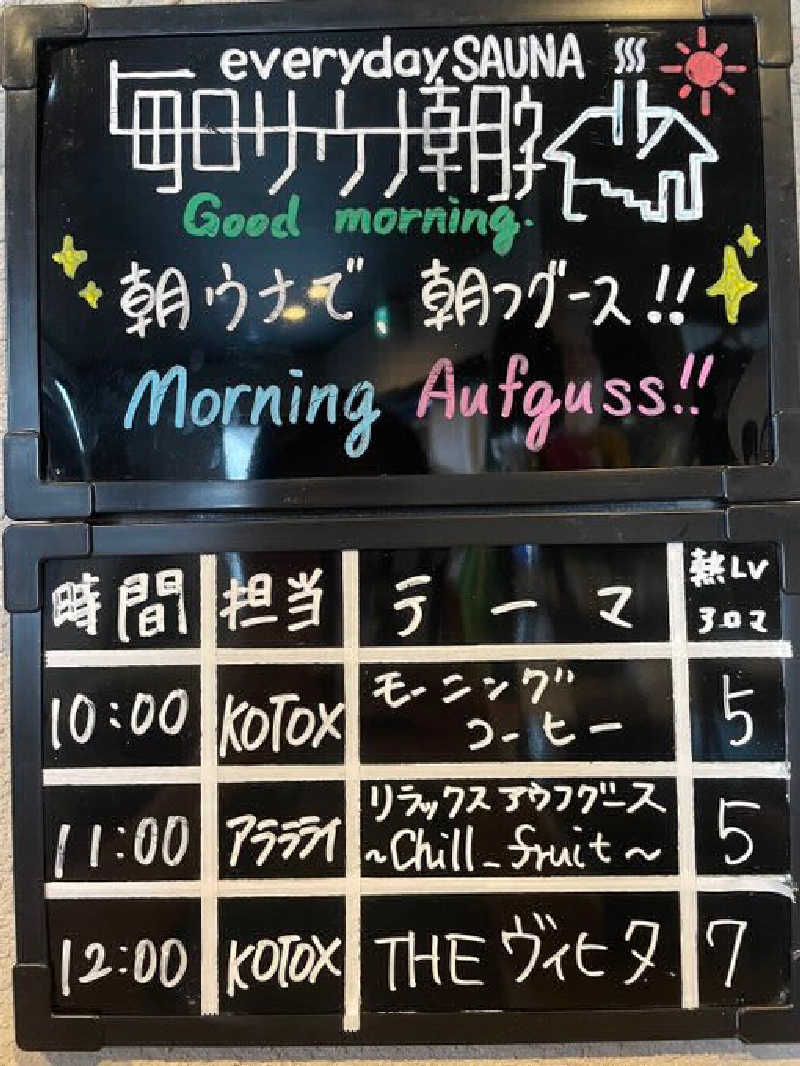 everyday SAUNA
毎日サウナ
Good morning.
朝ウナで 朝フグース!!
Morning Aufguss!!
時間 担当 テーマ 熱LV アロマ
10:00 KOTOX モーニングコーヒー 5
11:00 アラララライ リラックスアウフグース ~Chill_fruit~ 5
12:00 KOTOX THEヴィヒタ 7